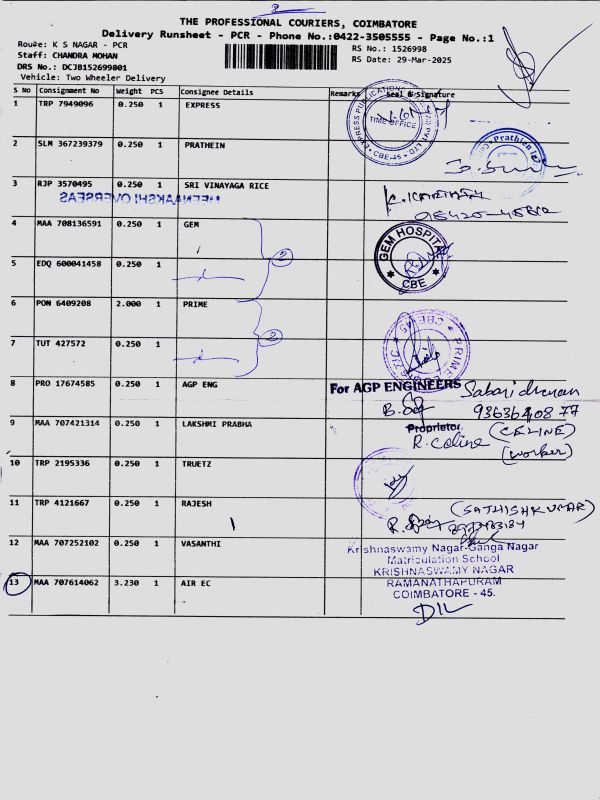 THE PROFESSIONAL COURIERS, COIMBATORE
Delivery Runsheet - PCR - Phone No.:0422-3505555 - Page No.:1
Route: K S NAGAR - PCR
Staff: CHANDRA MOHAN
DRS No.: DCJB152699801
Vehicle: Two Wheeler Delivery
RS No.: 1526998
RS Date: 29-Mar-2025
S No Consignment No Weight PCS Consignee Details Remarks Seal & Signature
1 TRP 7949096 0.250 1 EXPRESS
TIME OFFICE
CBE-45
2 SLM 367239379 0.250 1 PRATHEIN
3 RJP 3570495 0.250 1 SRI VINAYAGA RICE
MEENAKSHI OVERSEAS
4 MAA 708136591 0.250 1 GEM
2
GEM HOSPITAL
CBE
5 EDQ 600041458 0.250 1
6 PON 6409208 2.000 1 PRIME
2
7 TUT 427572 0.250 1
8 PRO 17674585 0.250 1 AGP ENG
For AGP ENGINEERS
Proprietor
9 MAA 707421314 0.250 1 LAKSHMI PRABHA
R. Celine
(CELINE)
(worker)
10 TRP 2195336 0.250 1 TRUETZ
11 TRP 4121667 0.250 1 RAJESH
(SATHISHKUMAR)
12 MAA 707252102 0.250 1 VASANTHI
Krishnaswamy Nagar-Ganga Nagar
Matriculation School
KRISHNASWAMY NAGAR
RAMANATHAPURAM
COIMBATORE - 45.
13 MAA 707614062 3.230 1 AIR EC